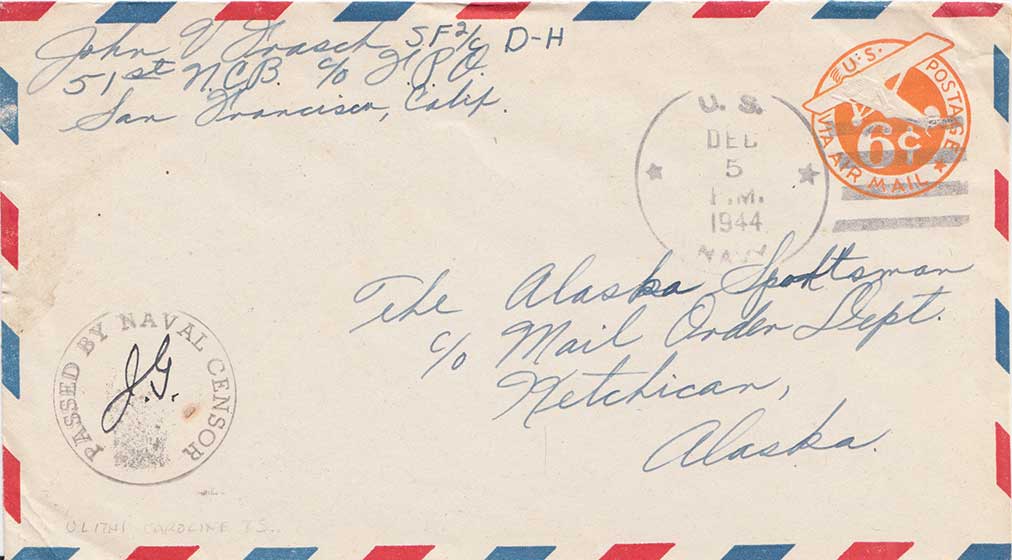 John V Frasch SF2/c D-H
51st N.C.B. c/o F.P.O.
San Francisco, Calif.
U.S. POSTAGE
6¢
VIA AIR MAIL
U. S.
DEC
5
P.M.
1944
NAVY
The Alaska Sportsman
c/o Mail Order Dept.
Ketchican,
Alaska.
PASSED BY NAVAL CENSOR
J.G.
ULITHI CAROLINE IS.